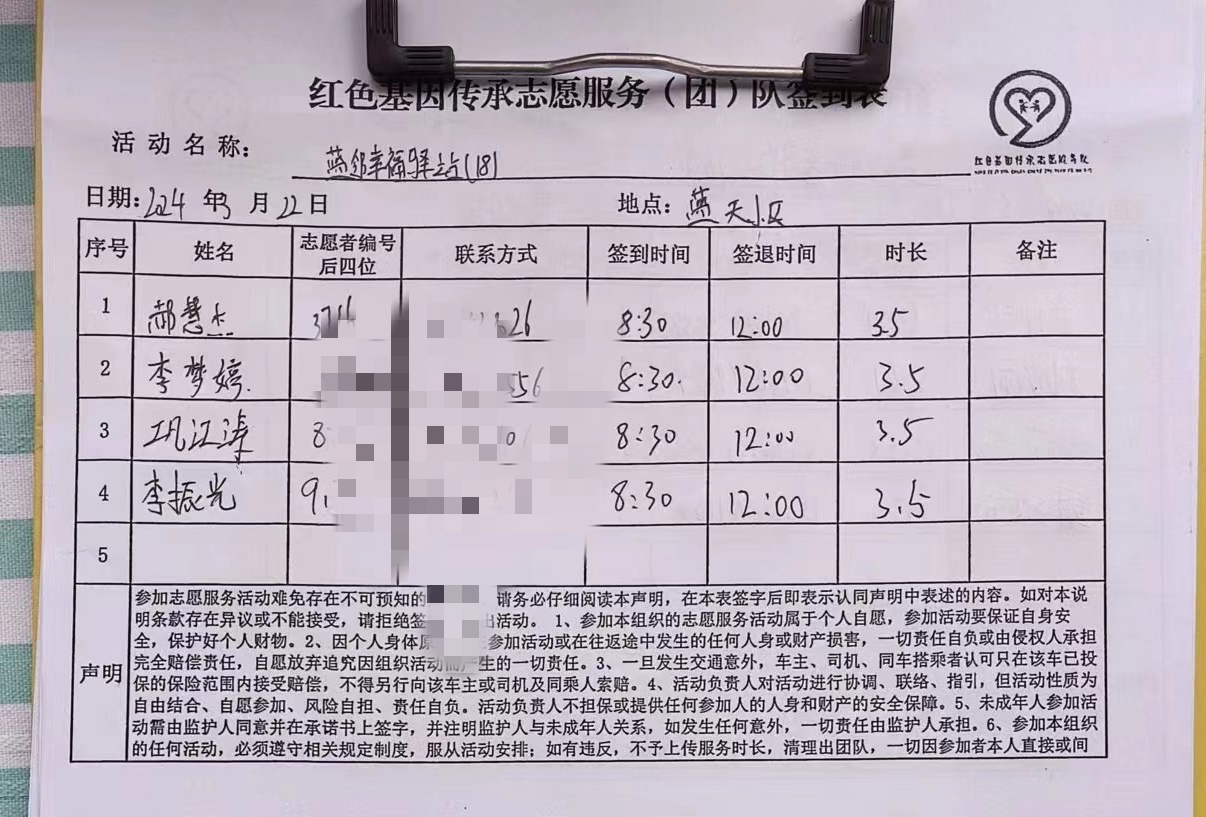 红色基因传承志愿服务（团）队签到表
活动名称：燕邻幸福驿站(18)
红色基因传承志愿服务队
日期：2024年3月22日 地点：燕天小区
序号 姓名 志愿者编号后四位 联系方式 签到时间 签退时间 时长 备注
1 郝慧杰 26 8:30 12:00 3.5
2 李梦婷 556 8:30 12:00 3.5
3 巩江涛 8 8:30 12:00 3.5
4 李振光 9 8:30 12:00 3.5
5
声明
参加志愿服务活动难免存在不可预知的 请务必仔细阅读本声明，在本表签字后即表示认同声明中表述的内容。如对本说
明条款存在异议或不能接受，请拒绝签 出活动。 1、参加本组织的志愿服务活动属于个人自愿，参加活动要保证自身安
全，保护好个人财物。2、因个人身体原 参加活动或在往返途中发生的任何人身或财产损害，一切责任自负或由侵权人承担
完全赔偿责任，自愿放弃追究因组织活动而产生的一切责任。3、一旦发生交通意外，车主、司机、同车搭乘者认可只在该车已投
保的保险范围内接受赔偿，不得另行向该车主或司机及同乘人索赔。4、活动负责人对活动进行协调、联络、指引，但活动性质为
自由结合、自愿参加、风险自担、责任自负。活动负责人不担保或提供任何参加人的人身和财产的安全保障。5、未成年人参加活
动需由监护人同意并在承诺书上签字，并注明监护人与未成年人关系，如发生任何意外，一切责任由监护人承担。6、参加本组织
的任何活动，必须遵守相关规定制度，服从活动安排；如有违反，不予上传服务时长，清理出团队，一切因参加者本人直接或间